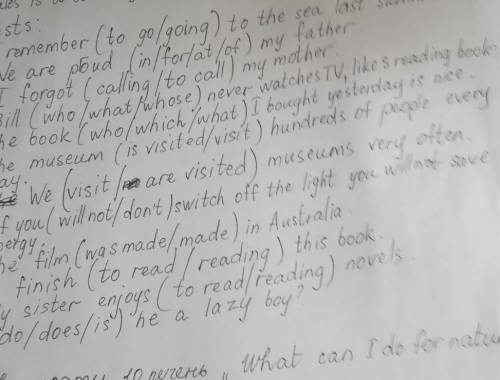 sts:
remember (to go/going) to the sea last
We are proud (in/for/at/of) my father.
I forgot (calling/to call) my mother.
Bill (who/what/whose) never watches TV, likes reading book
he book (who/which/what) I bought yesterday is nice.
he museum (is visited/visit) hundreds of people every
ay.
We (visit/are visited) museums very often.
If you (will not/don't) switch off the light you will not save
nergy.
he film (was made/made) in Australia.
finish (to read/reading) this book.
y sister enjoys (to read/reading) novels.
do/does/is) he a lazy boy?
10 речень „What can I do for natu